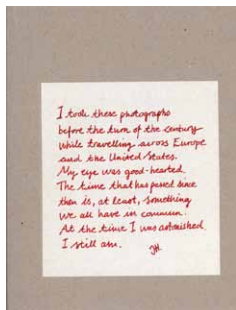 I took these photographs
before the turn of the century
while travelling across Europe
and the United States.
My eye was good-hearted.
The time that has passed since
then is, at least, something
we all have in common.
At the time I was astonished.
I still am.
JH